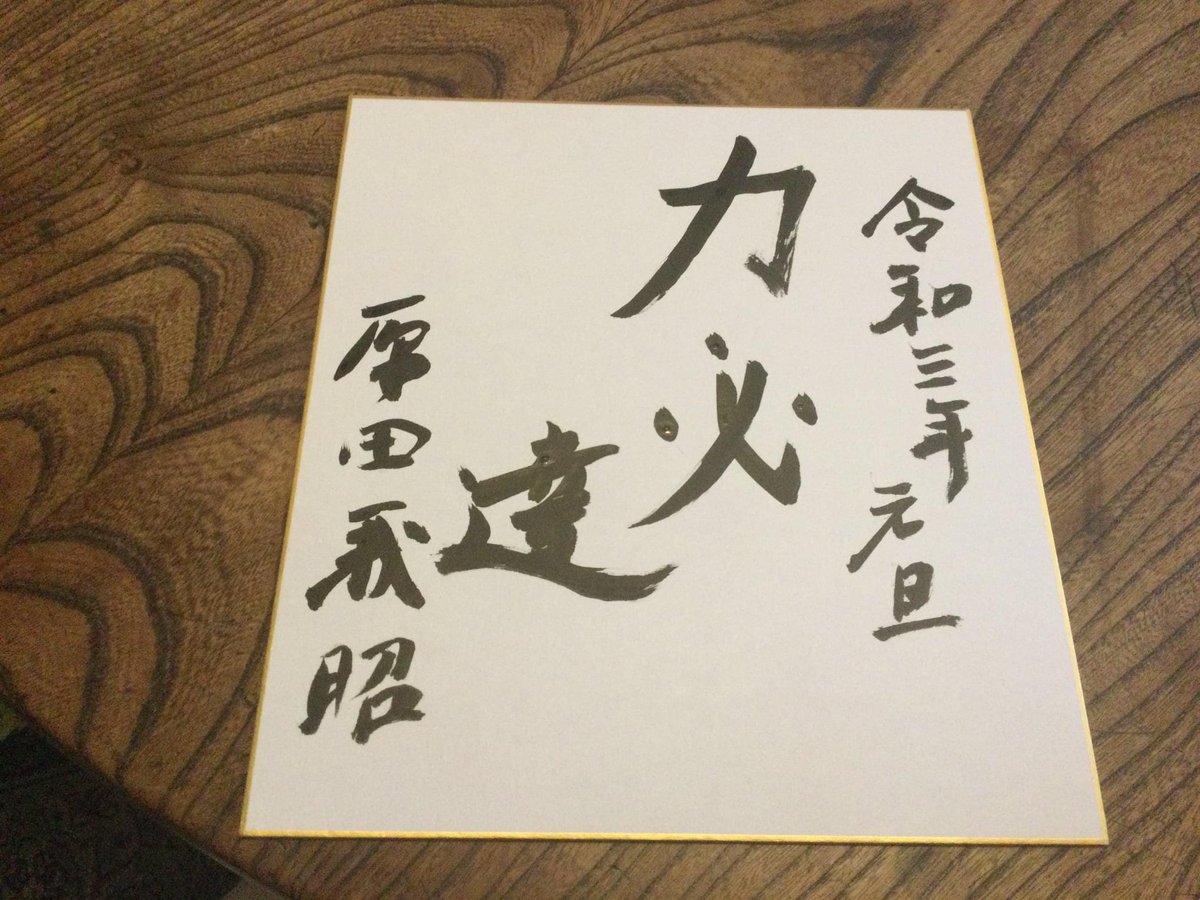 令和三年 元旦
力必達
原田義昭